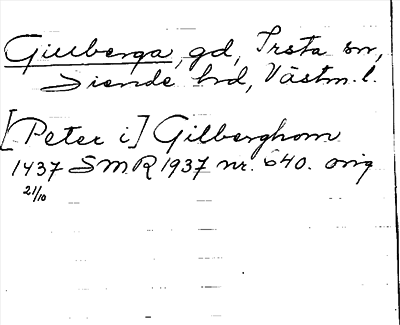 Gillberga, gd, Irsta sn,
Siende hrd, Västm. l.
[Peter i] Gilberghom
1437 SMR 1937 nr. 640. orig
21/10